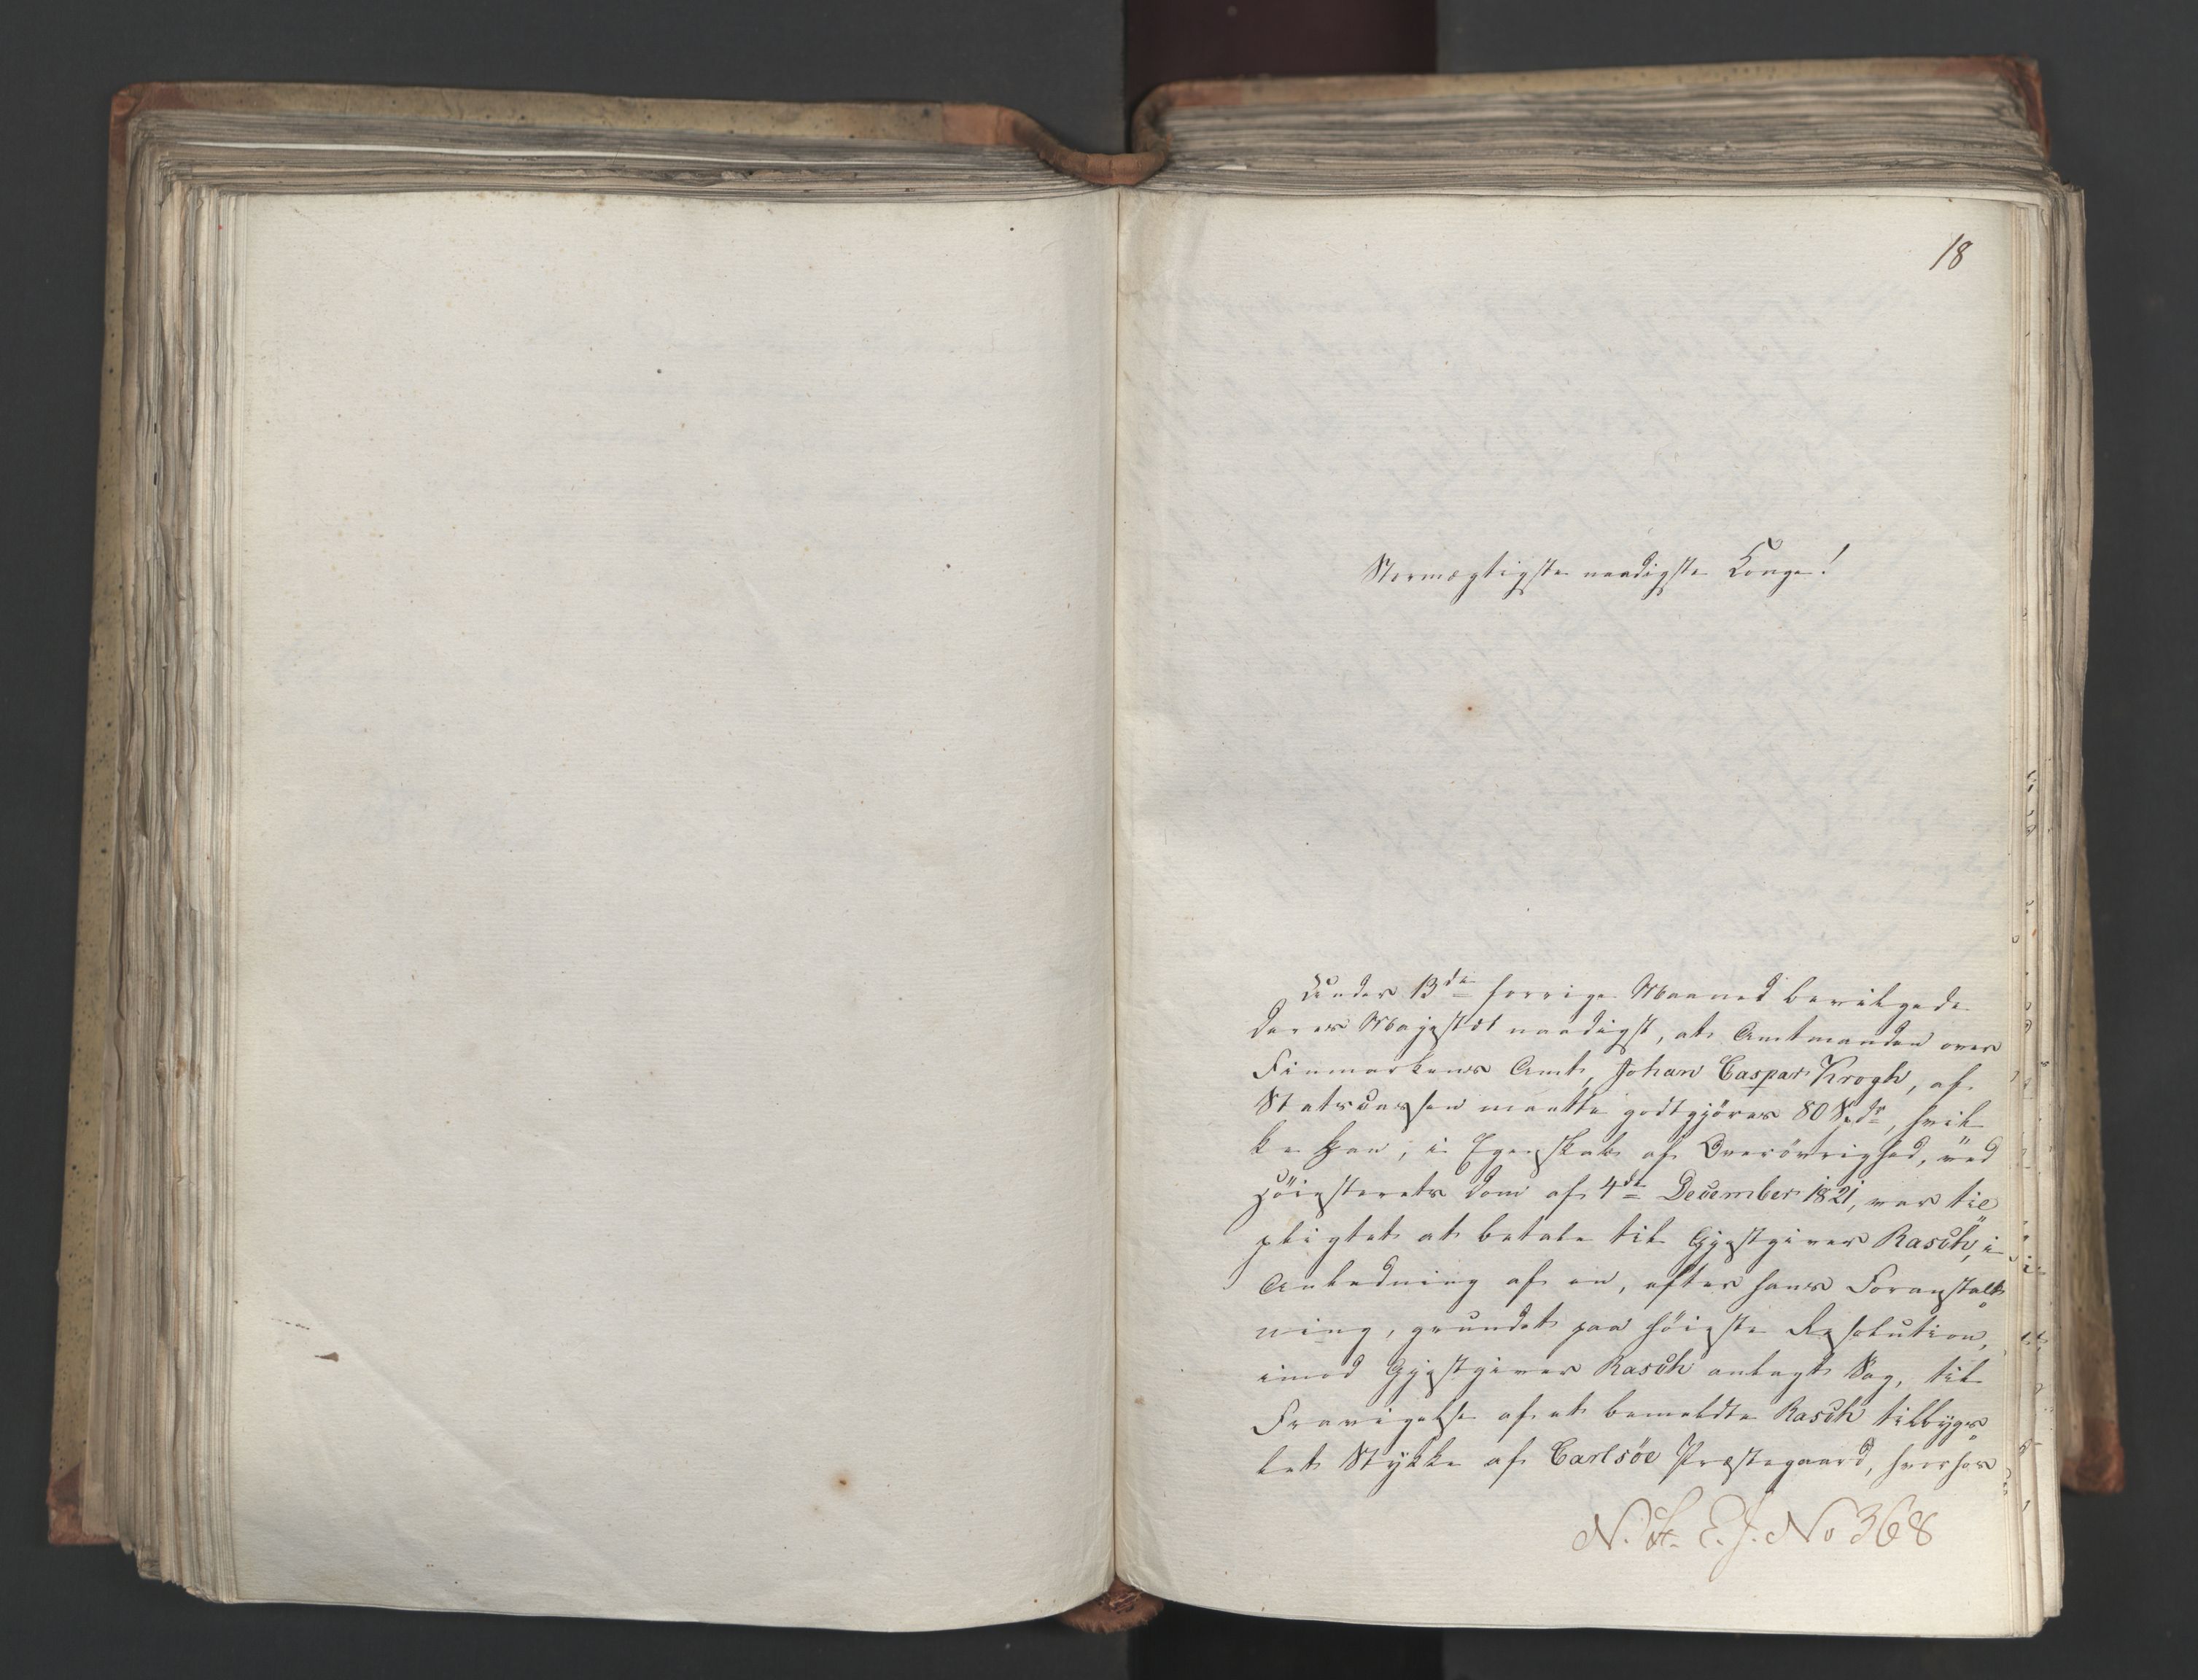 18
Stormægtigste naadigste Konge!
Under 13de forrige Maaned bevilgede
Deres Majestæt naadigst, at Amtmanden over
Finmarkens Amt, Johan Caspar Krogh, af
Statscassen maatte godtgjöres 80 Spdr, hvil
ke han, i Egenskab af Overövrighed, ved
Höiesterets Dom af 4de December 1821, var til
pligtet at betale til Gjestgiver Rasch, i
Anledning af en, efter hans Foranstalt
ning, grundet paa höieste Resolution,
imod Gjestgiver Rasch anlagt Sag, til
Fravigelse af et bemeldte Rasch tilbyg
let Stykke af Carlsöe Præstegaard, hvorfor
N. E. J. No 368